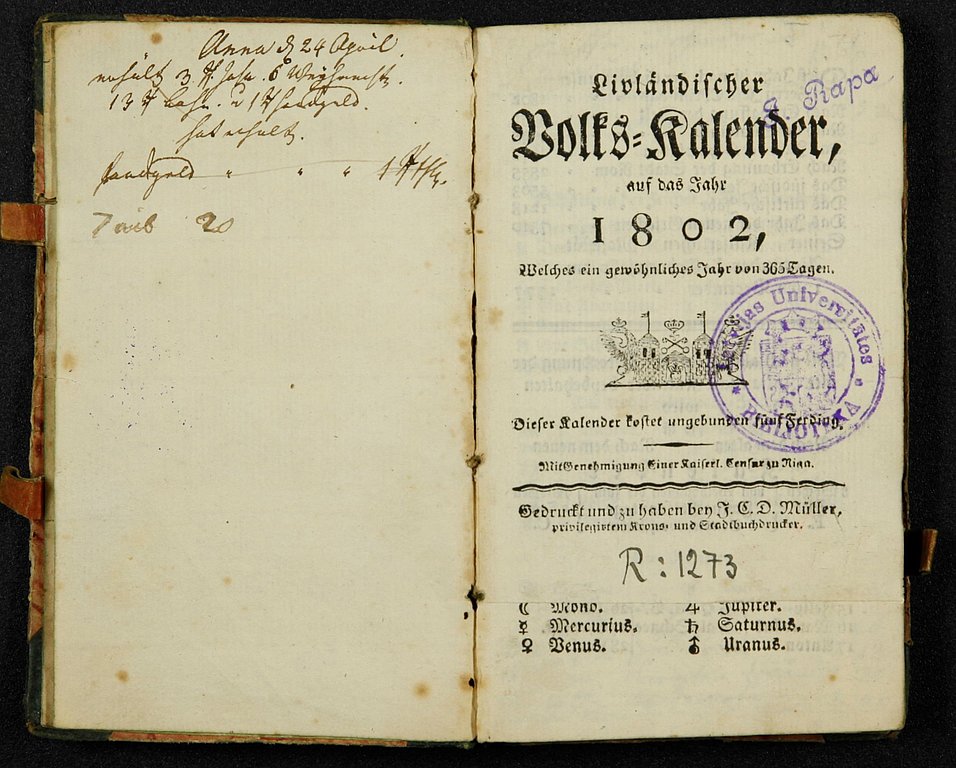 Anna d 24 April.
erhält 3
13
hat erhält.
Handgeld " " "
20
Livländischer
J. Rapa
Volks-Kalender,
auf das Jahr
1802,
Welches ein gewöhnliches Jahr von 365 Tagen.
Latvijas Universitates
BIBLIOTEKA
Dieser Kalender kostet ungebunden fünf Ferding.
Mit Genehmigung Einer Kaiserl. Censur zu Riga.
Gedruckt und zu haben bey J. C. D. Müller,
privilegirtem Krons- und Stadtbuchdrucker.
R: 1273
☾ Mond. ♃ Jupiter.
☿ Mercurius. ♄ Saturnus.
♀ Venus. ⛢ Uranus.